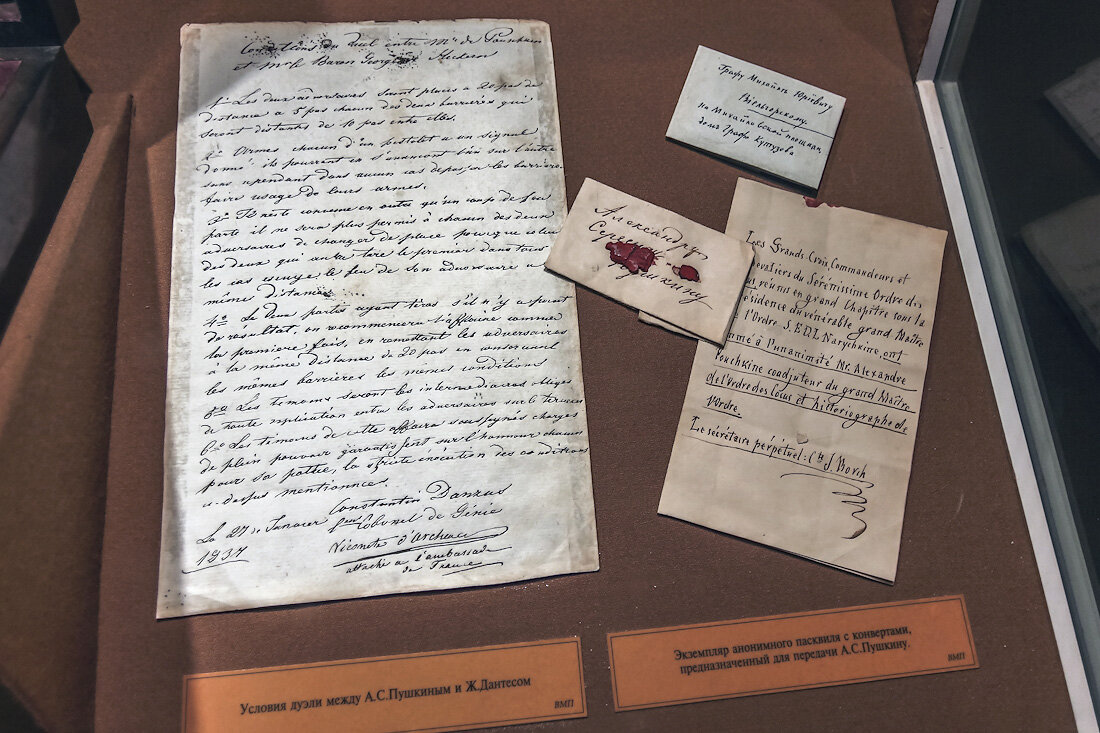 Conditions du duel entre Mr de Pouschkin
et Mr le Baron Georges Heckeren
1º Les deux adversaires seront placés à 20 pas de
distance à 5 pas chacun des deux barrières qui
seront distantes de 10 pas entre elles.
2º Armés chacun d'un pistolet à un signal
donné ils pourront en s'avançant l'un sur l'autre
sans cependant dans aucun cas dépasser les barrières
faire usage de leurs armes.
3º Il reste convenu en outre qu'un coup de feu
parti il ne sera plus permis à chacun des deux
adversaires de changer de place pour que celui
des deux qui aura tiré le premier dans tous
les cas essuye le feu de son adversaire à
même distance
4º Les deux parties ayant tirés s'il n'y a point
de résultat, on recommencera l'affaire comme
la première fois, en remettant les adversaires
à la même distance de 20 pas en conservant
les mêmes barrières les mêmes conditions
5º Les témoins seront les intermédiaires obligés
de toute explication entre les adversaires sur le terrain
6º Les témoins de cette affaire soussignés chargés
de plein pouvoir garantissent sur l'honneur chacun
pour sa partie, la stricte exécution des conditions
ci-dessus mentionnées.
Constantin Danzas
Lieut Colonel de Génie
Le 27 Janvier
1837
Vicomte d'Archiac
attaché à l'ambassade
de France
Графу Михайлѣ Юрїевичу
Вїельгорскому.
на Михайловской площади
домъ Графа Кутузова
Александру
Сергеичу
Пушкину
Les Grands-Croix, Commandeurs et
Chevaliers du Sérénissime Ordre des
réunis en grand Chapitre sous la
présidence du vénérable grand-Maître
de l'Ordre S.E.D.L. Narychkine, ont
nommé à l'unanimité Mr. Alexandre
Pouchkine coadjuteur du grand Maître
de l'Ordre des Cocus et historiographe de
l'Ordre.
Le sécrétaire perpétuel: Cte J. Borch
Условия дуэли между А.С.Пушкиным и Ж.Дантесом
ВМП
Экземпляр анонимного пасквиля с конвертами,
предназначенный для передачи А.С.Пушкину.
ВМП